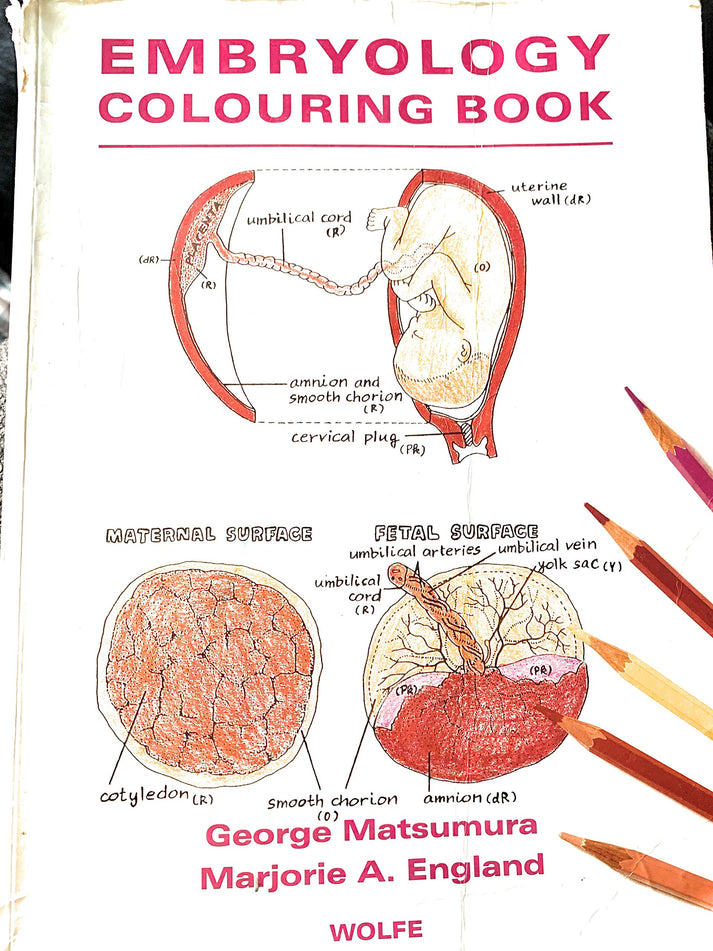 EMBRYOLOGY
COLOURING BOOK
uterine
wall (dR)
umbilical cord
(R)
PLACENTA
(dR)
(R)
(O)
amnion and
smooth chorion
(R)
cervical plug
(PR)
MATERNAL SURFACE
FETAL SURFACE
umbilical arteries
umbilical vein
yolk sac (Y)
umbilical
cord
(R)
(PR)
(PR)
cotyledon (R)
smooth chorion
(O)
amnion (dR)
George Matsumura
Marjorie A. England
WOLFE